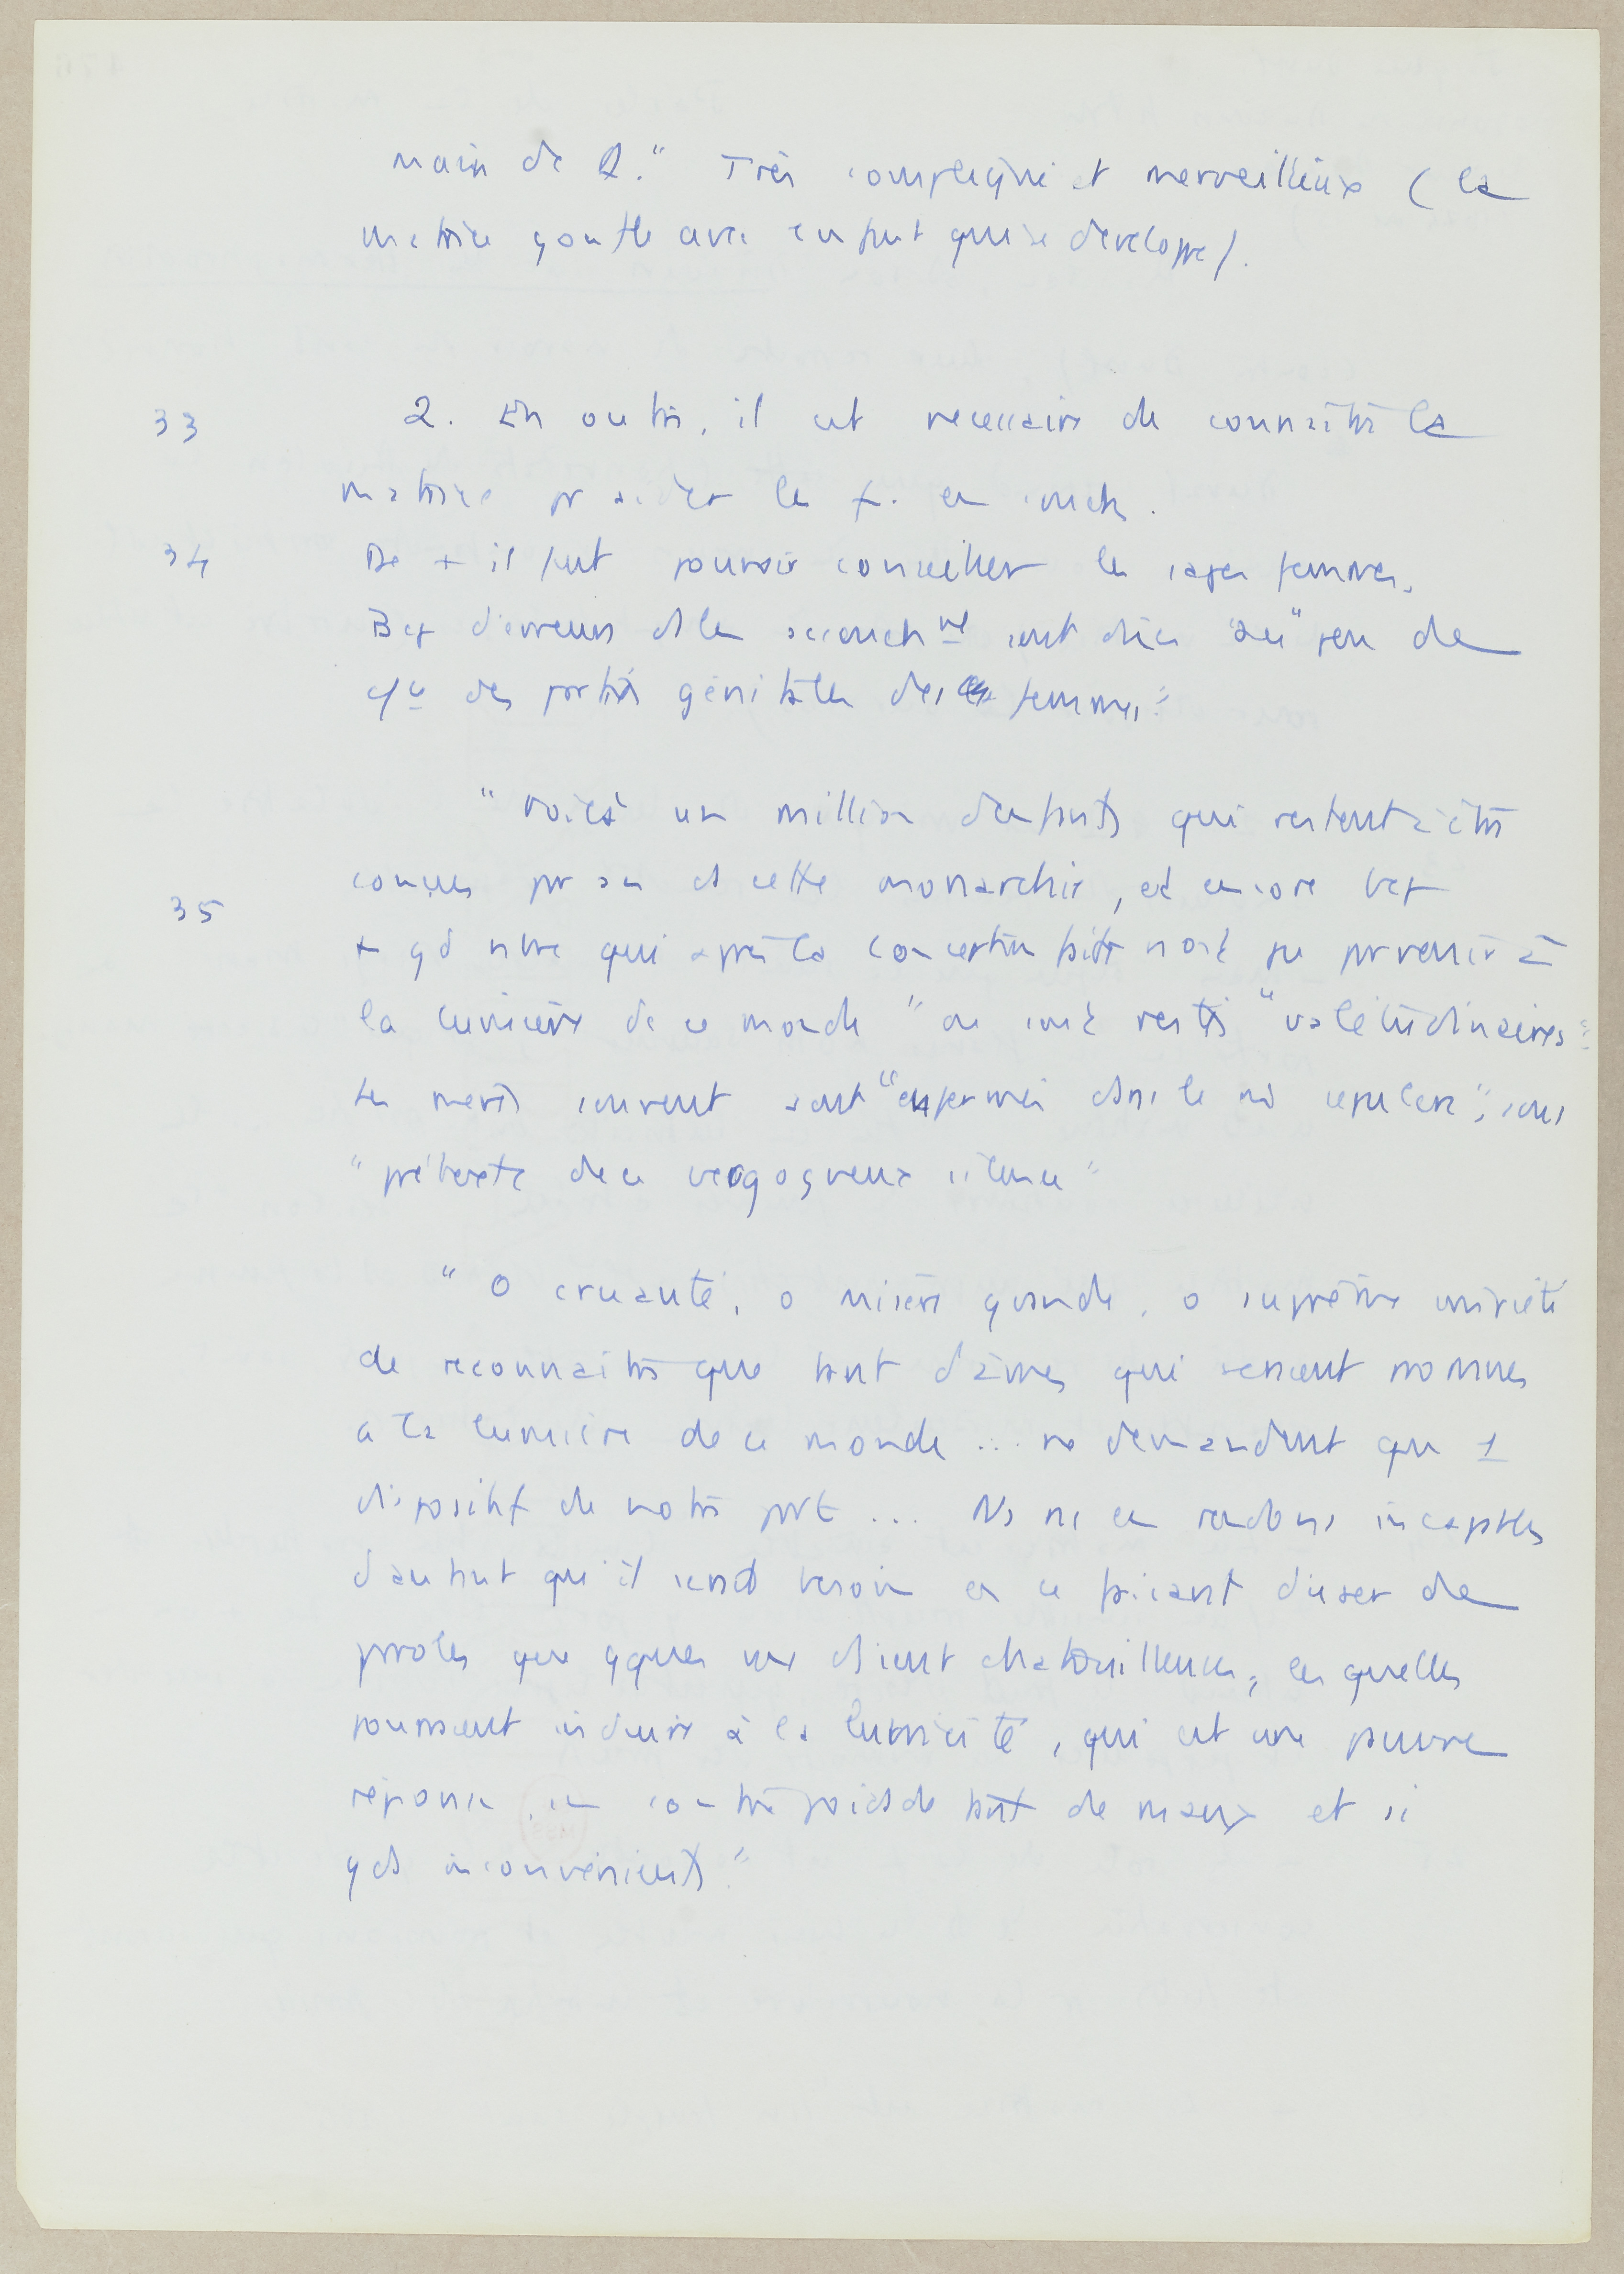 main de D." Très compliqué et merveilleux (la
matrice gonfle avec enfant qui se développe).
33 2. En outre, il est nécessaire de connaître la
matrice pr aider les f. en couche.
34 De + il faut pouvoir conseiller les sages femmes.
Bcp d'erreurs ds les accouchnt sont dues "au" peu de
des parties génitales des femmes"
"voilà un million d'enfants qui restent à être
conçus pr an ds cette monarchie, et encore bcp
35 + gd nbre qui après la conception faite n'ont pu parvenir à
la lumière de ce monde" ou sont restés "valétudinaires"
les mères souvent sont "enfermées dans le même sépulcre", sous
"prétexte de ce vergogneux silence"
"O cruauté, o misère grande, o suprême impiété
de reconnaître que tant d'âmes qui seraient venues
à la lumière de ce monde ... ne demandent qu 1
dispositif de notre part ... Ns ns en rendons incapables
d'autant qu'il serait besoin en ce faisant d'user de
paroles que qques uns disent chatouilleuses, lesquelles
pourraient induire à la lubricité, qui est une pauvre
réponse, en contrepoids de tant de maux et si
gds inconvénients"